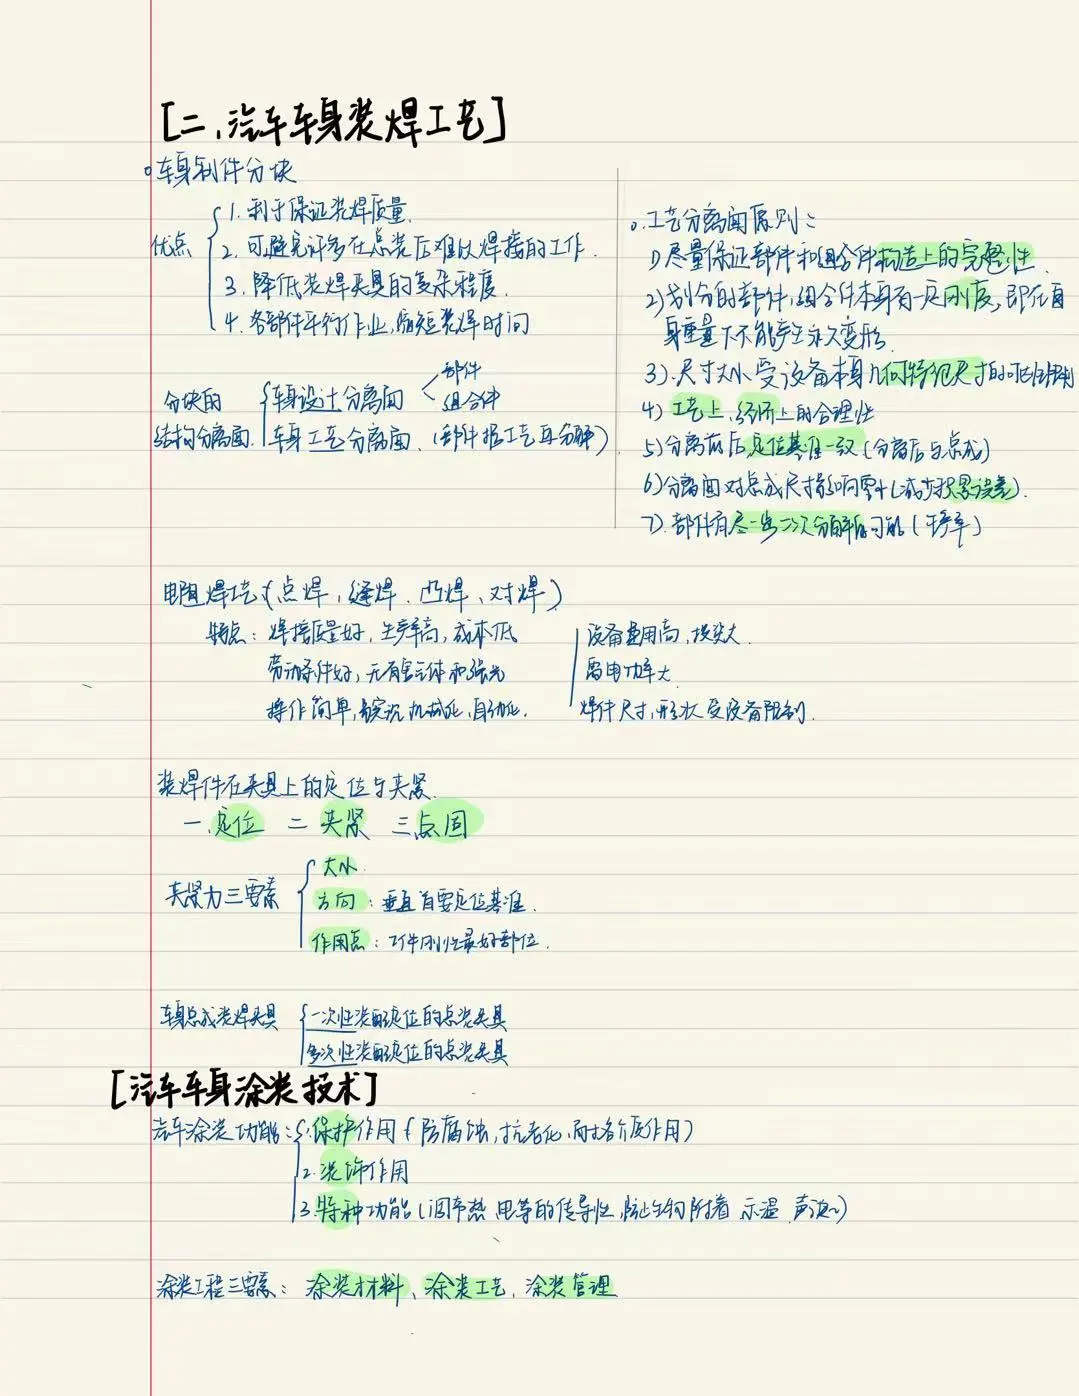 [二、汽车车身装焊工艺]
车身制件分块
优点
1. 利于保证装焊质量.
2. 可避免许多在总装后难以焊接的工作.
3. 降低装焊夹具的复杂程度.
4. 各部件平行作业,缩短装焊时间
分块的
结构分离面.
车身设计分离面
部件
组合件
车身工艺分离面. (部件按工艺再分解)
工艺分离面原则:
1) 尽量保证部件和组合件构造上的完整性.
2) 划分的部件,组合件本身有一定刚度,即在自
身重量下不能产生永久变形.
3). 尺寸大小受设备本身几何特征尺寸的
4) 工艺上、经济上的合理性
5) 分离前后定位基准一致(分离后与总成)
6) 分离面对总成尺寸影响要小(减少积累误差).
7). 部件有进一步二次分解的可能(生产率)
电阻焊工艺(点焊,缝焊、凸焊、对焊)
特点: 焊接质量好,生产率高,成本低
劳动条件好,无有害气体和强光
操作简单,易实现机械化、自动化.
设备费用高,投资大.
需电功率大.
焊件尺寸,形状受设备限制.
装焊件在夹具上的定位与夹紧.
一.定位 二 夹紧 三点固
夹紧力三要素
大小.
方向: 垂直首要定位基准.
作用点: 工件刚性最好部位.
车身总成装焊夹具
一次性装配定位的总装夹具
多次性装配定位的总装夹具
[汽车车身涂装技术]
汽车涂装功能:
1.保护作用(防腐蚀,抗老化,耐各介质作用)
2.装饰作用
3.特种功能(调节热 电等的传导性,防止生物附着 示温 声波~)
涂装工程三要素: 涂装材料、涂装工艺、涂装管理